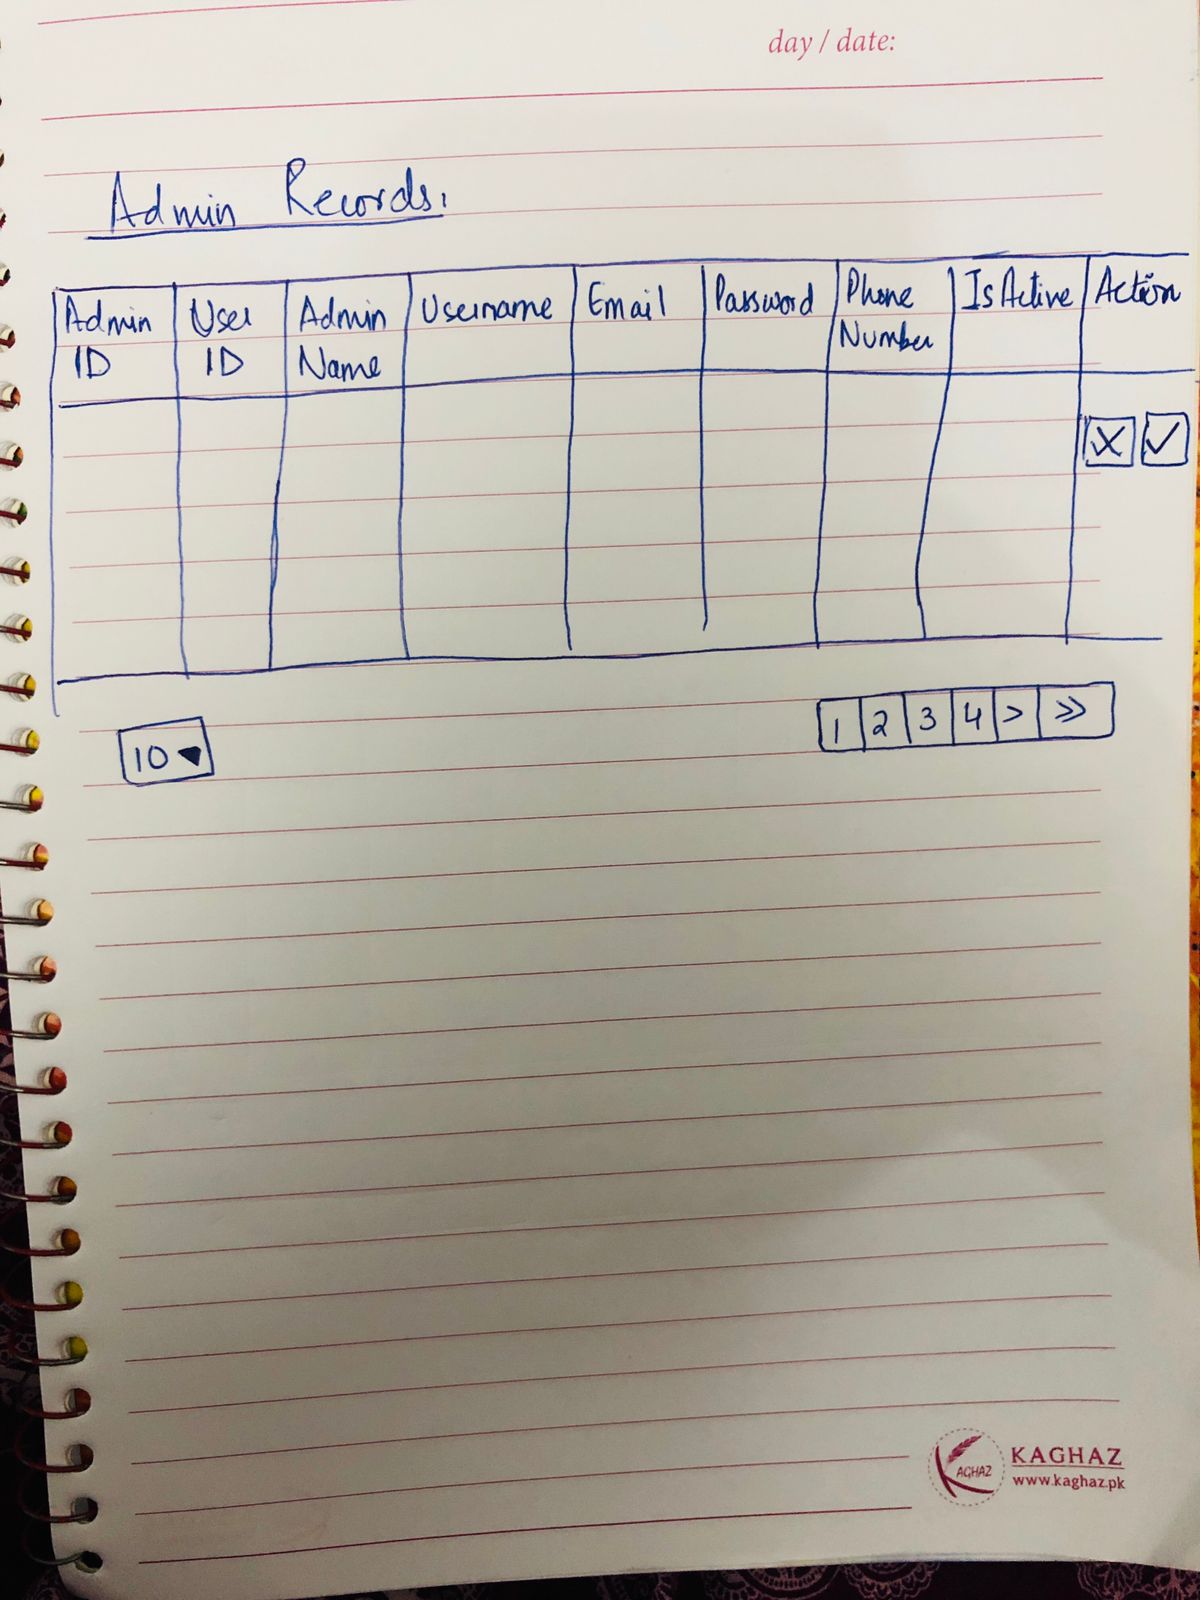 day / date:
Admin Records:
Admin ID
User ID
Admin Name
Username
Email
Password
Phone Number
Is Active
Action
10
1 2 3 4 > >>
AGHAZ
KAGHAZ
www.kaghaz.pk